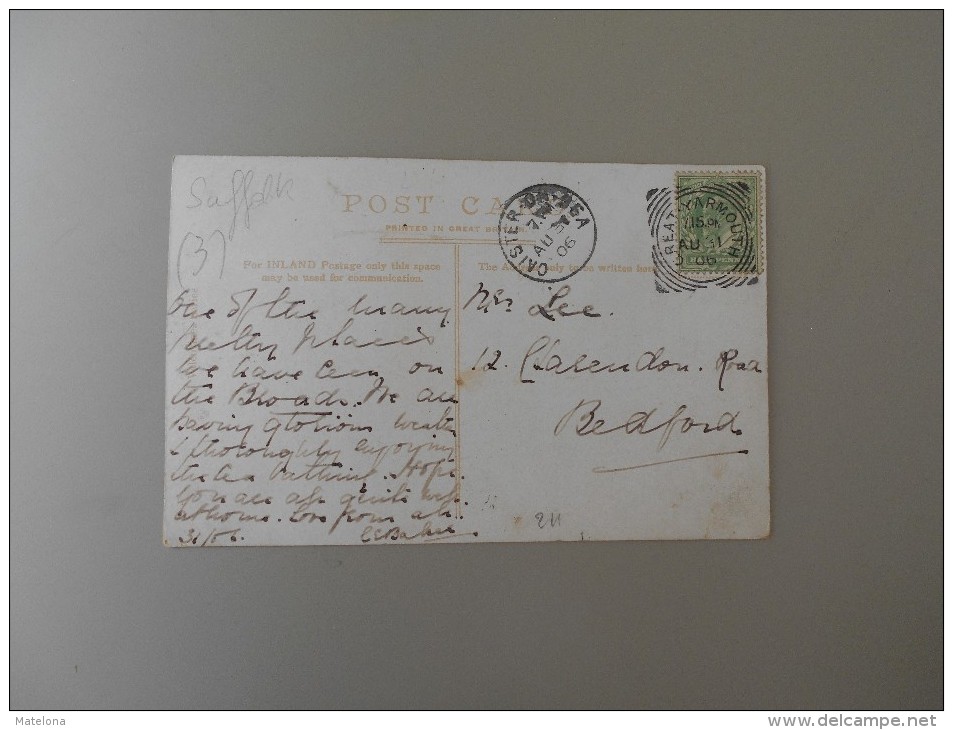 Suffolk
(3)
POST CARD
PRINTED IN GREAT BRITAIN
For INLAND Postage only this space
may be used for communication.
The Address only to be written here
CAISTER-ON-SEA
AU 31
06
GREAT YARMOUTH
7.15 PM
AU 31
06
HALFPENNY
One of the many
pretty places
we have been on
the Broads. We are
having glorious weather
& thoroughly enjoying
the sea bathing. Hope
you are all quite well
at home. Love from all.
31/06.
Mrs Lee.
12. Clarendon. Road
Bedford
211
Matelona
www.delcampe.net